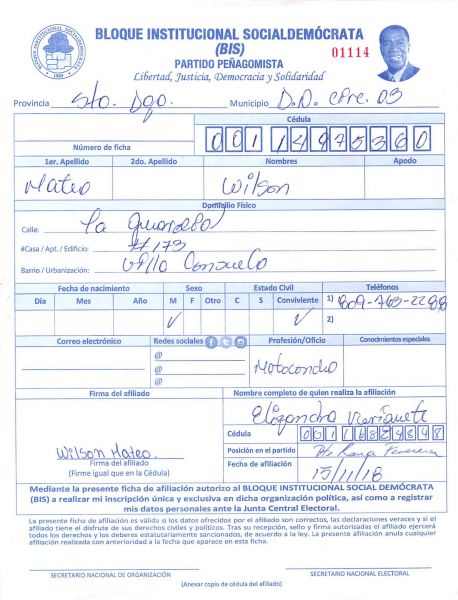 BLOQUE INSTITUCIONAL SOCIALDEMÓCRATA
(BIS)
01114
PARTIDO PEÑAGOMISTA
Libertad, Justicia, Democracia y Solidaridad
Provincia Sto. Dgo. Municipio D.N. circ. 03
Cédula
Número de ficha 00114975360
1er. Apellido 2do. Apellido Nombres Apodo
Mateo Wilson
Domicilio Físico
Calle: La
#Casa / Apt. / Edificio: #173
Barrio / Urbanización: Villa Consuelo
Fecha de nacimiento Sexo Estado Civil Teléfonos
Día Mes Año M F Otro C S Conviviente 1) 809-763-2288
✓ ✓ 2)
Correo electrónico Redes sociales Profesión/Oficio Conocimientos especiales
@
@
@
Motoconcho
Firma del afiliado Nombre completo de quien realiza la afiliación
Cédula
Wilson Mateo.
Firma del afiliado
(Firme igual que en la Cédula)
Posición en el partido
Fecha de afiliación 15/11/18
Mediante la presente ficha de afiliación autorizo al BLOQUE INSTITUCIONAL SOCIAL DEMÓCRATA
(BIS) a realizar mi inscripción única y exclusiva en dicha organización política, así como a registrar
mis datos personales ante la Junta Central Electoral.
La presente ficha de afiliación es válida si los datos ofrecidos por el afiliado son correctos, las declaraciones veraces y si el
afiliado tiene el disfrute de sus derechos civiles y políticos. Tras su recepción, sello y firma autorizadas el afiliado ejercerá
todos los derechos y los deberes estatutariamente sancionados, de acuerdo a la ley. La presente afiliación anula cualquier
afiliación realizada con anterioridad a la fecha que aparece en esta ficha.
SECRETARIO NACIONAL DE ORGANIZACIÓN SECRETARIO NACIONAL ELECTORAL
(Anexar copia de cédula del afiliado)